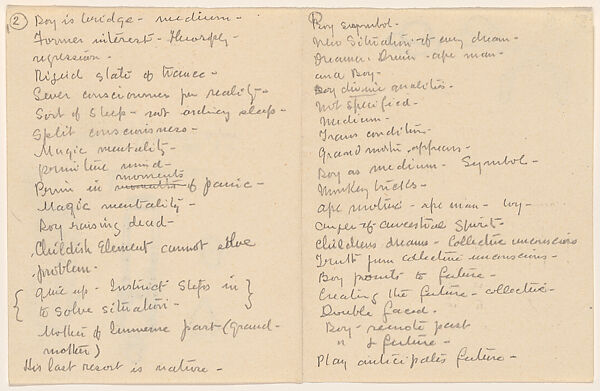 (2) Boy is bridge - medium -
Former interest - Theosophy -
regression -
Rigid state of trance -
Sever consciousness fr reality -
Sort of Sleep - not ordinary sleep -
Split consciousness -
Magic mentality -
primitive mind -
in moments of panic -
Magic mentality -
Boy raising dead -
Childish Element cannot solve
problem -
Give up - Instinct Steps in
to Solve situation -
Mother of Immense past (Grand-
mother)
His last resort is nature -
Boy symbol -
New Situation of every dream -
Dreamer - ape man -
and Boy -
Boy divine qualities -
not Specified -
Medium -
Trans condition -
Grand mother appears -
Boy as medium - Symbol -
Monkey tricks -
ape motive - ape man - boy -
of ancestral Spirit -
Childrens dreams - Collective unconscious
Truth from collective unconscious -
Boy points to future -
Creating the future - collective -
Double faced -
Boy - remote past
" & future -
Play anticipates future -